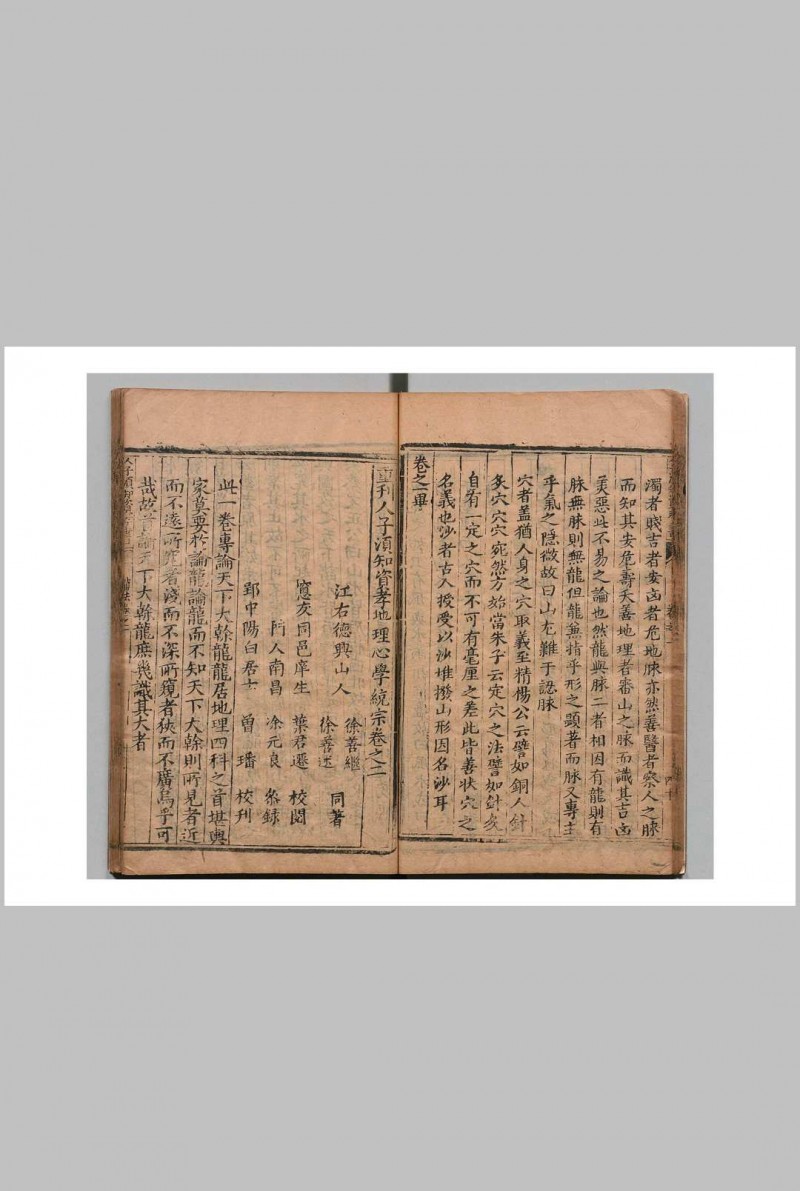 濁者賤吉者安凶者危地脉亦然善醫者察人之脉
而知其安危壽夭善地理者審山之脉而識其吉凶
美惡此不易之論也然龍與脉二者相因有龍則有
脉無脉則無龍但龍兼指乎形之顯著而脉又專主
乎氣之隐微故曰山尤難于認脉
穴者蓋猶人身之穴取義至精楊公云譬如銅人針
灸穴穴穴宛然方始當朱子云定穴之法譬如針灸
自有一定之穴而不可有毫厘之差此皆善狀穴之
名義也沙者古人授受以沙堆撥山形因名沙耳
卷之一畢
重刊人子須知資孝地理心學統宗卷之二
江右德興山人 徐善繼
徐善述 同著
窓友同邑庠生 葉君遷 校閱
門人南昌 涂元良 叅録
鄞中陽白居士 曾璠 校刊
此一卷專論天下大幹龍龍居地理四科之首堪輿
家莫要於論龍論龍而不知天下大幹則所見者近
而不遠所究者淺而不深所窺者狹而不廣烏乎可
哉故首論天下大幹龍庶幾識其大者